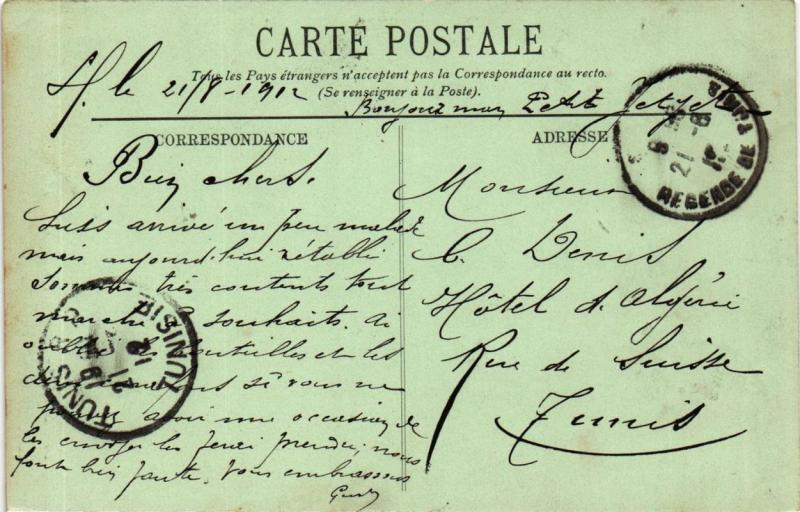 CARTE POSTALE
Tous les Pays étrangers n'acceptent pas la Correspondance au recto.
(Se renseigner à la Poste).
le 21/8-1912
Bonjour mon Petit
CORRESPONDANCE
ADRESSE
Bien chers.
Suis arrivé un peu malade
mais aujourd'hui rétabli
Sommes très contents tout
marche à souhaits. ai
oublié les et les
si vous ne
pouvez avoir une occasion de
les envoyer les ferai prendre, nous
vous embrassons
Monsieur
C. Denis
Hôtel d'Algérie
Rue de Suisse
Tunis
TUNIS
REGENCE DE
21 -8
12
TUNISIE
TUNIS
21